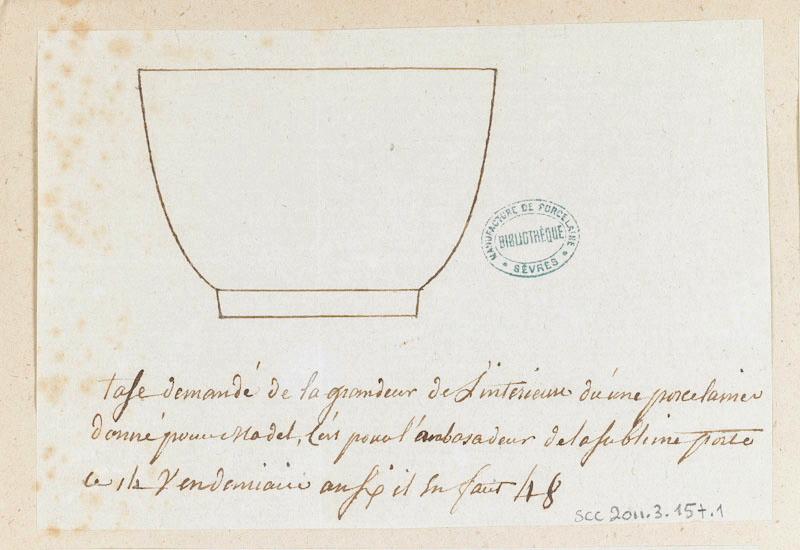 MANUFACTURE DE PORCELAINE
BIBLIOTHÈQUE
SÈVRES
tase demandé de la grandeur de L'interieur du'une porcelaine
donné pour Model, C'es pour l'anbasadeur de la sublime porte
ce 12 Vendemiaire an six il en faut 48
SCC 2011.3.157.1